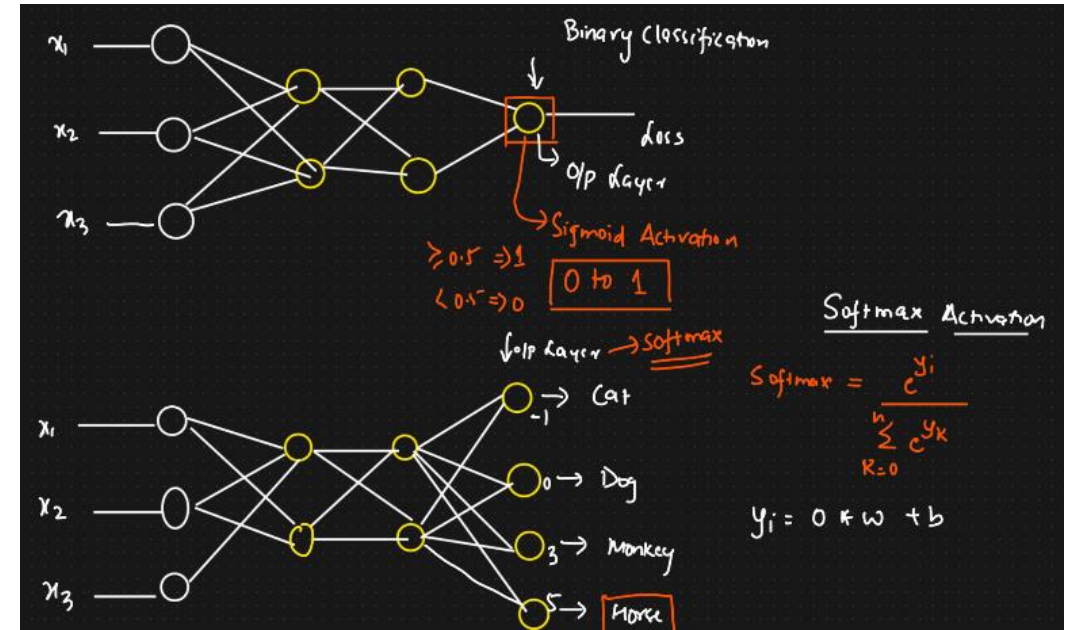 Binary Classification
x1
x2
x3
Loss
O/P Layer
Sigmoid Activation
≥ 0.5 => 1
< 0.5 => 0
0 to 1
Softmax Activation
O/P Layer → Softmax
Softmax = e^yi / n Σ K=0 e^yk
yi = O * w + b
x1
x2
x3
-1 → Cat
0 → Dog
3 → Monkey
5 → Horse